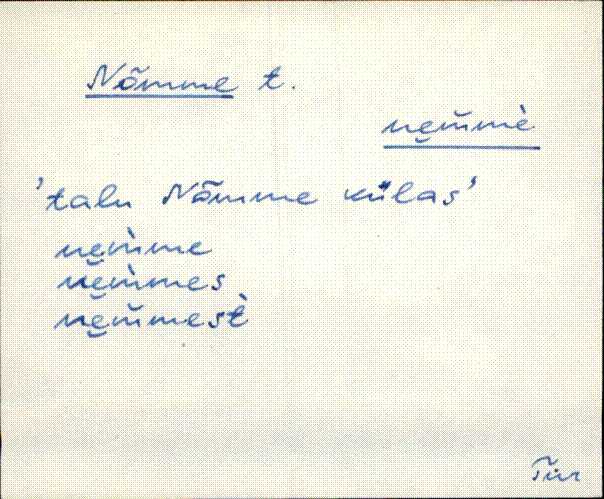 Nõmme t.
ne̮m̆mè
'talu Nõmme külas'
ne̮m̀me
ne̮m̀mes
ne̮m̆mest̀
Tür